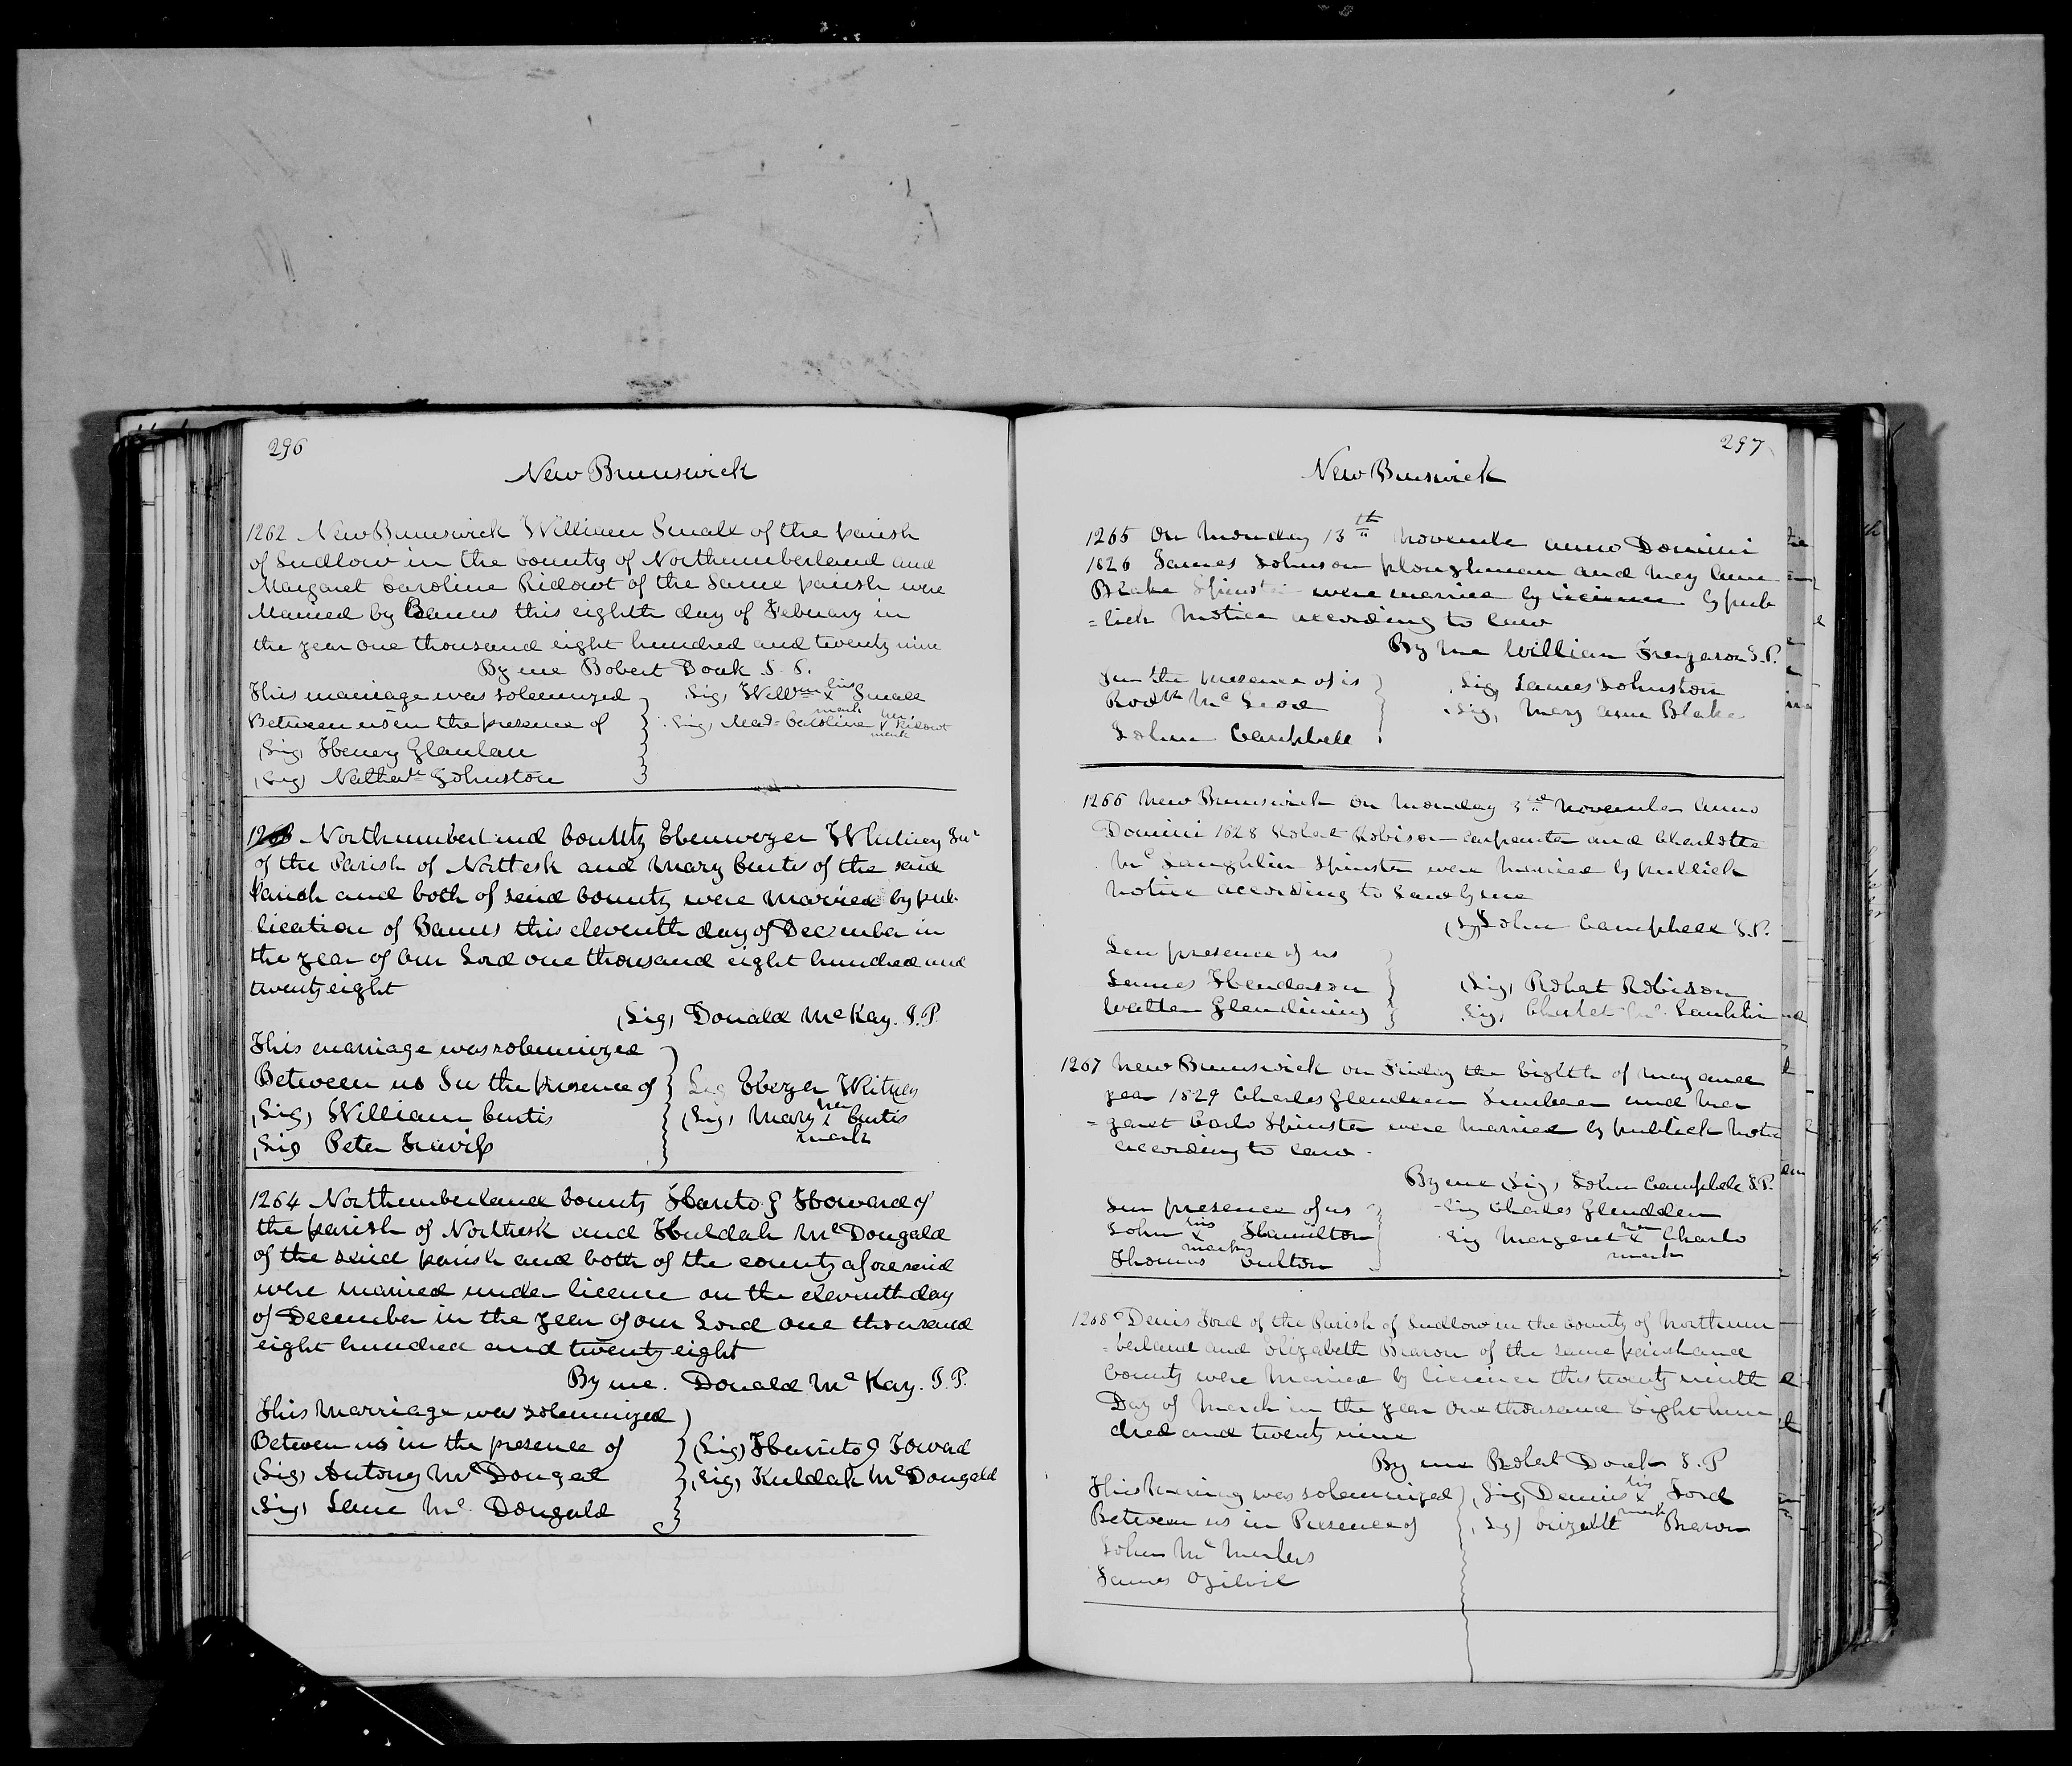 296
New Brunswick
1262 New Brunswick William Small of the parish
of Ludlow in the County of Northumberland and
Margaret Caroline Ridout of the Same parish were
Married by Banns this eighth day of Febuary in
the year one thousand eight hundred and twenty nine
By me Robert Doak J. P.
This marriage was solemnized
Between us in the presence of
(Sig) Henery
(Sig) Nathanl Johnston
(Sig) Willm his x mark Small
(Sig) Caroline her x mark Ridout
Northumberland County Ebenwezer Whitney Junr
of the Parish of Nortesk and Mary Curtis of the said
Parish and both of said County were Married by pub-
lication of Banns this eleventh day of December in
the year of Our Lord one thousand eight hundred and
twenty eight
(Sig) Donald McKay. J.P.
This marriage was solemnized
Between us In the presence of
(Sig) William Curtis
(Sig) Peter
Sig Ebezer Witney
(Sig) Mary her x mark Curtis
1264 Northumberland County Howard of
the parish of Northesk and Huldah McDougald
of the said parish and both of the county aforesaid
were married under licence on the eleventh day
of December in the year of our Lord one thousand
eight hundred and twenty eight
By me. Donald McKay. J.P.
This Marriage was solemnized
Between us in the presence of
(Sig) Antony McDougal
(Sig) Lane Mc Dougald
(Sig) Foward
(Sig) Kuldah McDougald
297
New Bruswick
1265 On Monday 13th November anno Domini
1826 James Johnson ploughman and Mary Anne
Blake Spinster were married by licience by pub
=lick Notice according to law
By me William Fregerson J.P.
In the presence of is
Rodk McLeod
John Campbell
(Sig) James Johnston
(Sig) Mary Ann Blake
1266 New Brunswick On Monday 3rd November Anno
Domini 1828 Robert Robison Carpenter and Charlotte
McLaughlin Spinster were Married by publick
notice according to Law by me
(Sig) John Campbell J.P.
In presence of us
James Henderson
Walter Glendining
(Sig) Robert Robison
(Sig) Mc Lauklin
1267 New Brunswick on Friday the Eighth of May and
year 1829 Charles Glendeen and Mar
=garet Carlo Spinster were Married by publick Notice
according to law.
By me (Sig) John Campbell J.P.
In presence of us
John his x mark Hamilton
Thomas Coulton
Sig Charles Glendden
Sig Margaret her x mark Charlo
1268 Denis Ford of the Parish of Ludlow in the County of Northum
=berland and Elizabeth Brown of the same parish and
County were Married by licience this twenty ninth
Day of March in the year One thousand Eight hun
dred and twenty nine
By me Robert Doak J.P
This was solemnized
Between us in Presence of
John Mc
James Ogilvie
(Sig) Dennis his x mark Ford
(Sig) Brown